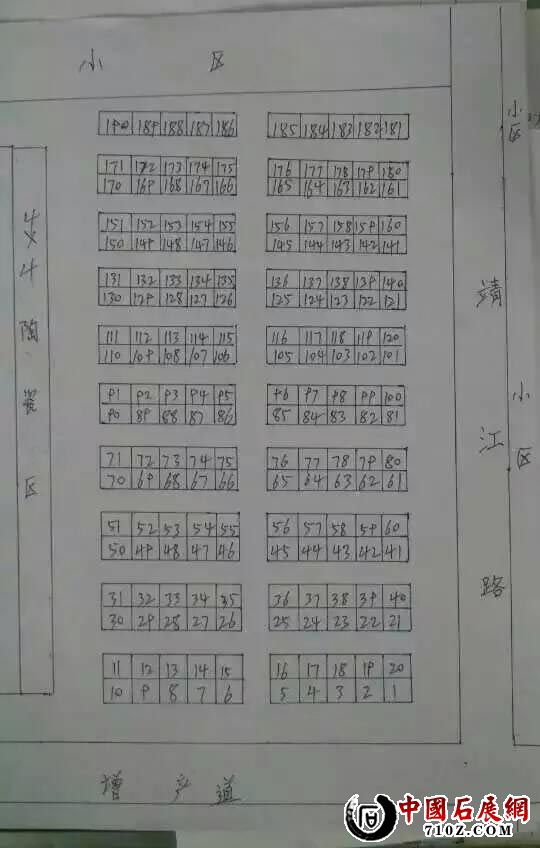 小 区
190 189 188 187 186 185 184 183 182 181
171 172 173 174 175 176 177 178 179 180
170 169 168 167 166 165 164 163 162 161
151 152 153 154 155 156 157 158 159 160
150 149 148 147 146 145 144 143 142 141
131 132 133 134 135 136 137 138 139 140
130 129 128 127 126 125 124 123 122 121
111 112 113 114 115 116 117 118 119 120
110 109 108 107 106 105 104 103 102 101
91 92 93 94 95 96 97 98 99 100
90 89 88 87 86 85 84 83 82 81
71 72 73 74 75 76 77 78 79 80
70 69 68 67 66 65 64 63 62 61
51 52 53 54 55 56 57 58 59 60
50 49 48 47 46 45 44 43 42 41
31 32 33 34 35 36 37 38 39 40
30 29 28 27 26 25 24 23 22 21
11 12 13 14 15 16 17 18 19 20
10 9 8 7 6 5 4 3 2 1
4×4陶瓷区
靖江路
小区
小区
增产道
中國石展網
710Z.COM